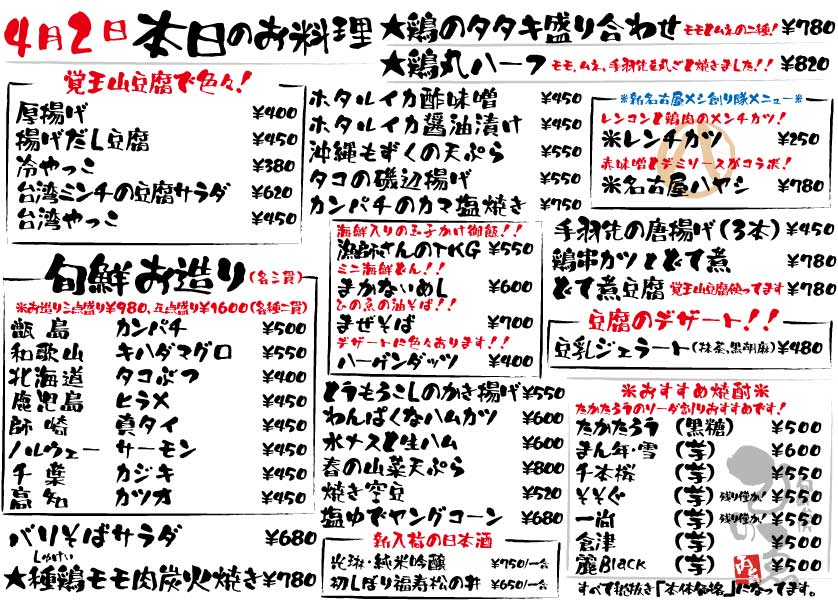 4月2日 本日のお料理
★鶏のタタキ盛り合わせ モモとムネの二種! ¥780
★鶏丸ハーフ モモ、ムネ、手羽先を丸ごと焼きました!! ¥820
覚王山豆腐で色々!
厚揚げ ¥400
揚げだし豆腐 ¥450
冷やっこ ¥380
台湾ミンチの豆腐サラダ ¥620
台湾やっこ ¥450
旬鮮お造り(各三貫)
※お造り三点盛り¥980、五点盛り¥1600(各種二貫)
甑島 カンパチ ¥500
和歌山 キハダマグロ ¥550
北海道 タコぶつ ¥400
鹿児島 ヒラメ ¥450
師崎 真タイ ¥450
ノルウェー サーモン ¥450
千葉 カジキ ¥450
高知 カツオ ¥450
バリそばサラダ ¥680
しゅけい
★種鶏モモ肉炭火焼き ¥780
ホタルイカ酢味噌 ¥450
ホタルイカ醤油漬け ¥450
沖縄もずくの天ぷら ¥550
タコの磯辺揚げ ¥550
カンパチのカマ塩焼き ¥750
海鮮入りの玉子かけ御飯!!
漁師さんのTKG ¥550
ミニ海鮮どん!!
まかないめし ¥600
ひの魚の油そば!!
まぜそば ¥700
デザートに色々あります!!
ハーゲンダッツ ¥400
とうもろこしのかき揚げ ¥550
わんぱくなハムカツ ¥600
水ナスと生ハム ¥600
春の山菜天ぷら ¥800
焼き空豆 ¥520
塩ゆでヤングコーン ¥680
新入荷の日本酒
光琳・純米吟醸 ¥750/一合
初しぼり福寿松の井 ¥650/一合
※新名古屋メシ創り隊メニュー※
レンコンと鶏肉のメンチカツ!
※レンチカツ ¥250
赤味噌とデミソースがコラボ!
※名古屋ハヤシ ¥780
手羽先の唐揚げ(3本) ¥450
鶏串カツとどて煮 ¥780
どて煮豆腐 覚王山豆腐使ってます ¥780
豆腐のデザート!!
豆乳ジェラート(抹茶、黒胡麻) ¥480
※おすすめ焼酎※
たかたろうのソーダ割りおすすめです!
たかたろう (黒糖) ¥500
まん年・雪 (芋) ¥600
千本桜 (芋) ¥500
そそぐ (芋) 残り僅か! ¥550
一尚 (芋) 残り僅か! ¥550
倉津 (芋) ¥500
麗Black (芋) ¥500
すべて税抜き「本体価格」になってます。